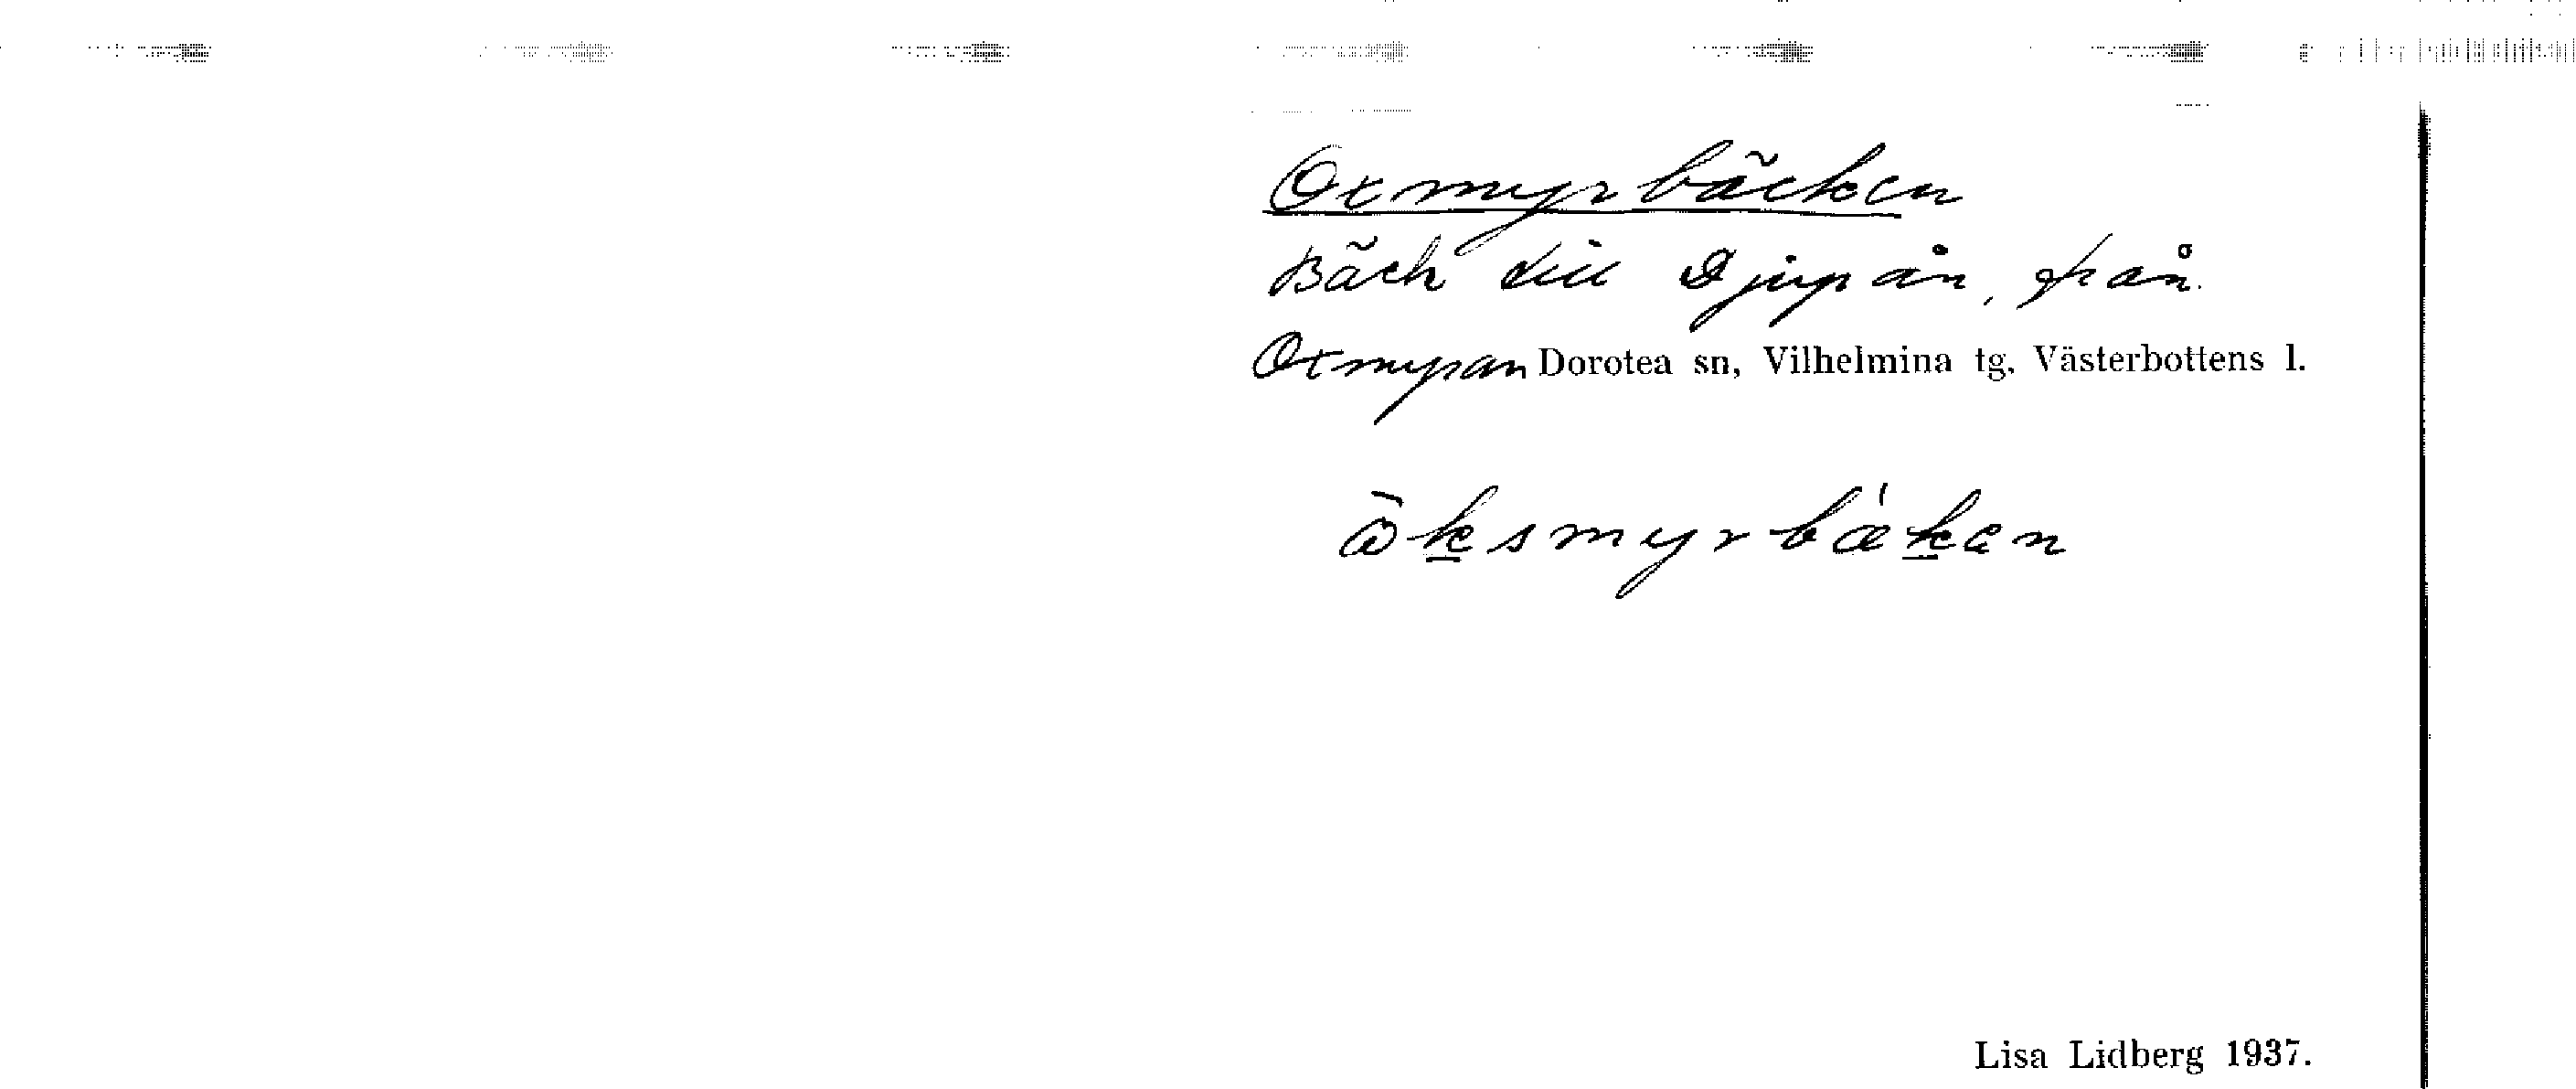 Oxmyrbäcken
Bäck till Djupån, från
Oxmyran Dorotea sn, Vilhelmina tg, Västerbottens l.
ò̄ksmyrbæ̀ken
Lisa Lidberg 1937.